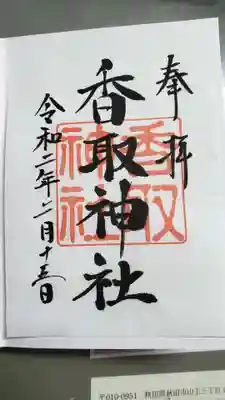 奉拝
香取神社
香取
神社
令和二年二月十五日
〒010-0951 秋田県秋田市山王三丁目